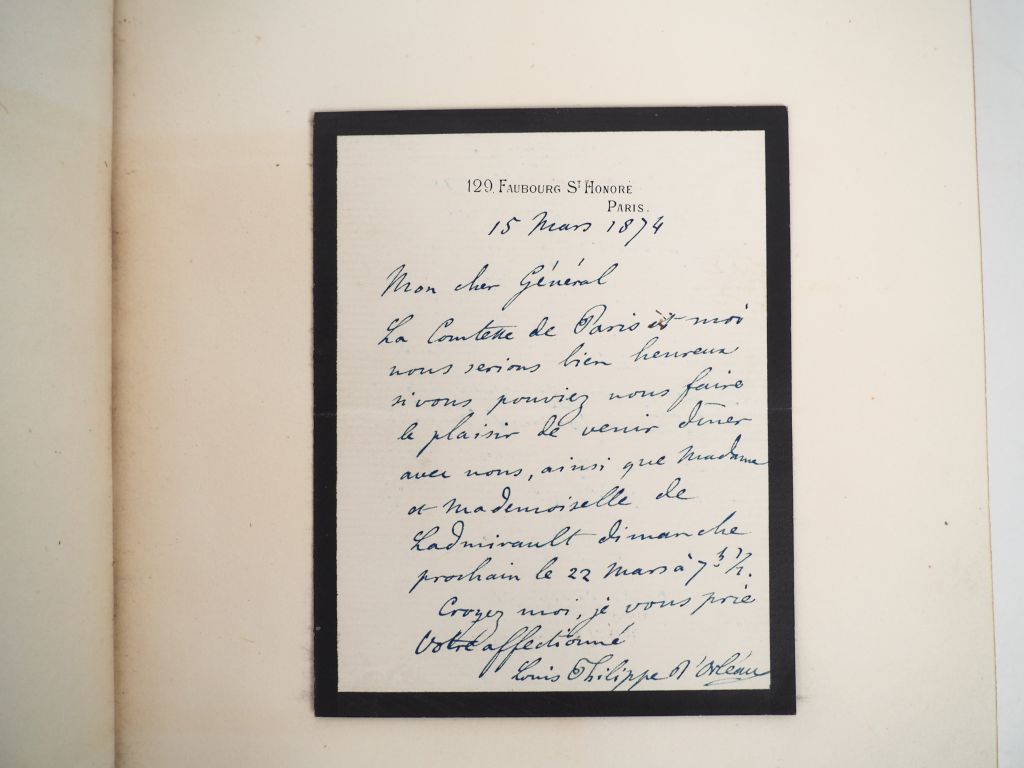 129, FAUBOURG ST HONORÉ
PARIS.
15 Mars 1874
Mon cher Général
La Comtesse de Paris et moi
nous serions bien heureux
si vous pouviez nous faire
le plaisir de venir dîner
avec nous, ainsi que Madame
et Mademoiselle de
Ladmirault dimanche
prochain le 22 Mars à 7h 1/2.
Croyez moi, je vous prie
Votre affectionné
Louis Philippe d'Orléans